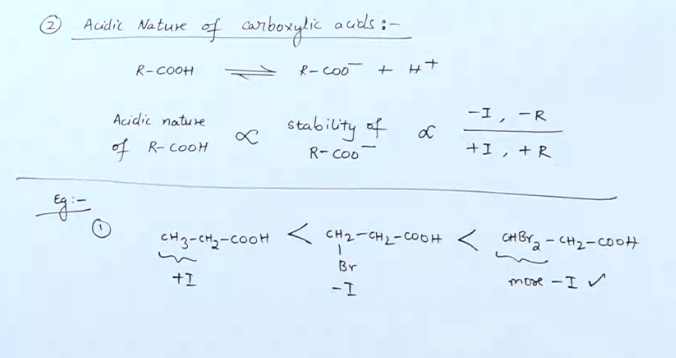 ② Acidic Nature of carboxylic acids :-
R-COOH ⇌ R-COO⁻ + H⁺
Acidic nature of R-COOH ∝ stability of R-COO⁻ ∝ -I, -R / +I, +R
Eg :-
① CH₃-CH₂-COOH < CH₂-CH₂-COOH < CHBr₂-CH₂-COOH
Br
+I -I more -I ✓